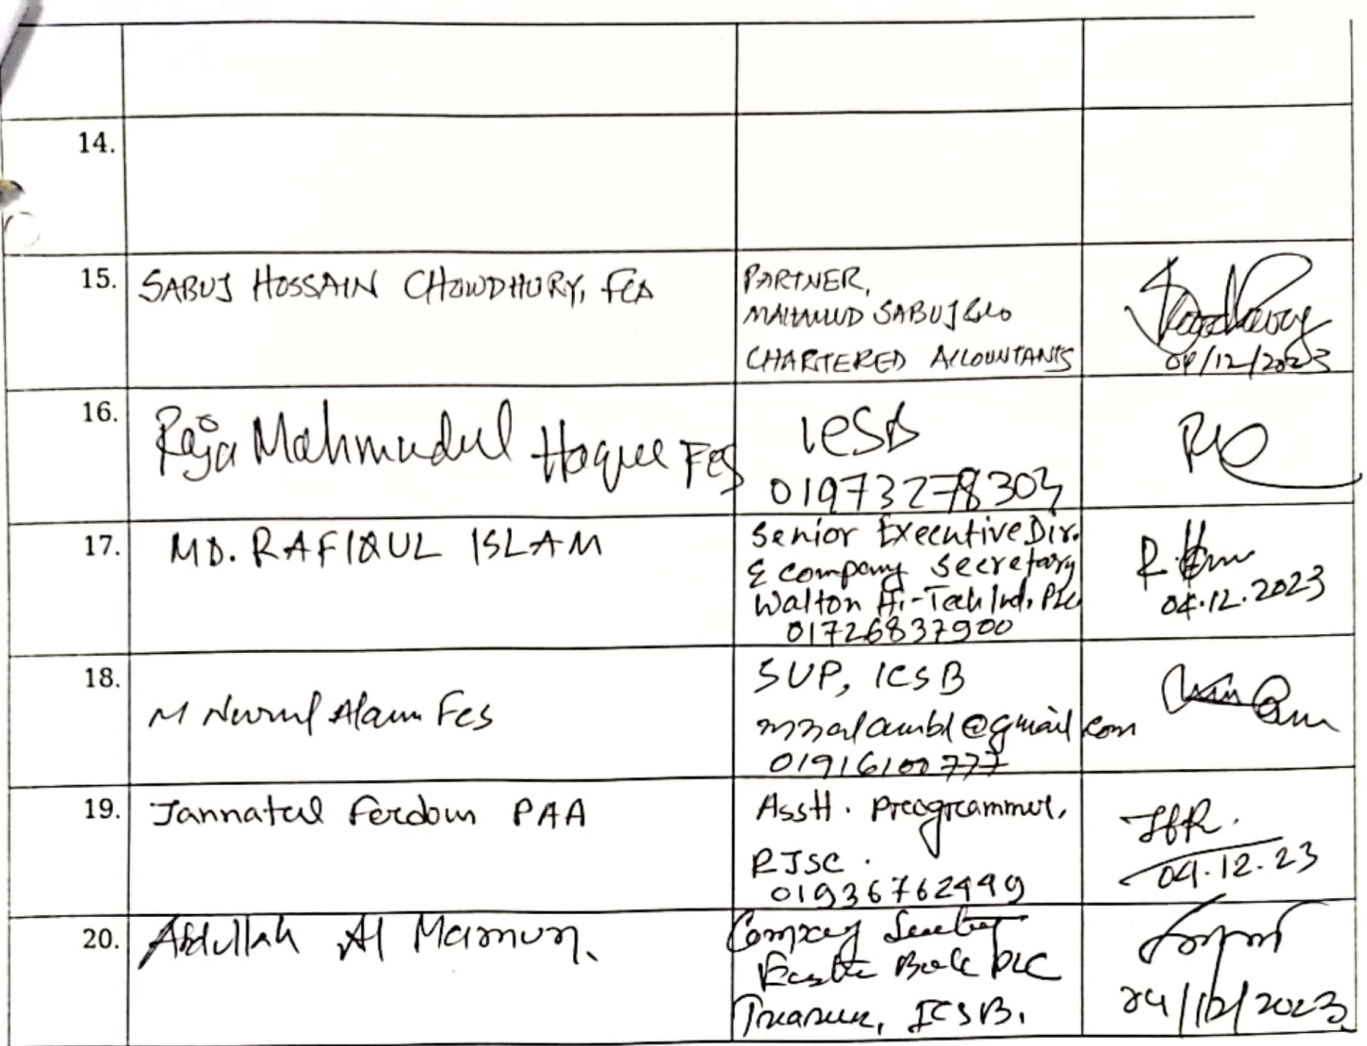 14.
15. SABUJ HOSSAIN CHOWDHURY, FCA
PARTNER,
MAHAMUD SABUJ & Co
CHARTERED ACCOUNTANTS
04/12/2023
16. Raja Mahmudul Hoque FCS
ICSB
01973278303
17. MD. RAFIQUL ISLAM
Senior Executive Dir.
& Company Secretary
Walton Hi-Tech Ind. PLC
01726837900
04.12.2023
18. M Nurul Alam FCS
SVP, ICSB
@gmail.com
01916100777
19. Jannatul Ferdous PAA
Asstt. Programmer,
RJSC.
01936762449
04.12.23
20. Abdullah Al Mamun.
Company Secretary
Bank PLC
Treasurer, ICSB.
04/12/2023